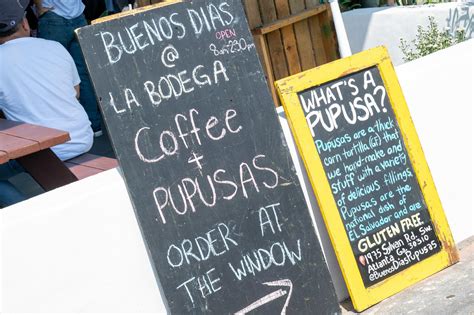 BUENOS DIAS
@
LA BODEGA
OPEN
8am-230pm
Coffee
+
PUPUSAS
ORDER AT
THE WINDOW
WHAT'S A
PUPUSA?
Pupusas are a thick
corn tortilla (GF) that
we hand-make and
stuff with a variety
of delicious fillings.
Pupusas are the
national dish of
EL Salvador and are
GLUTEN FREE
1975 Sylvan Rd. SW
Atlanta Ga, 30310
@BuenosDiasPupusas75